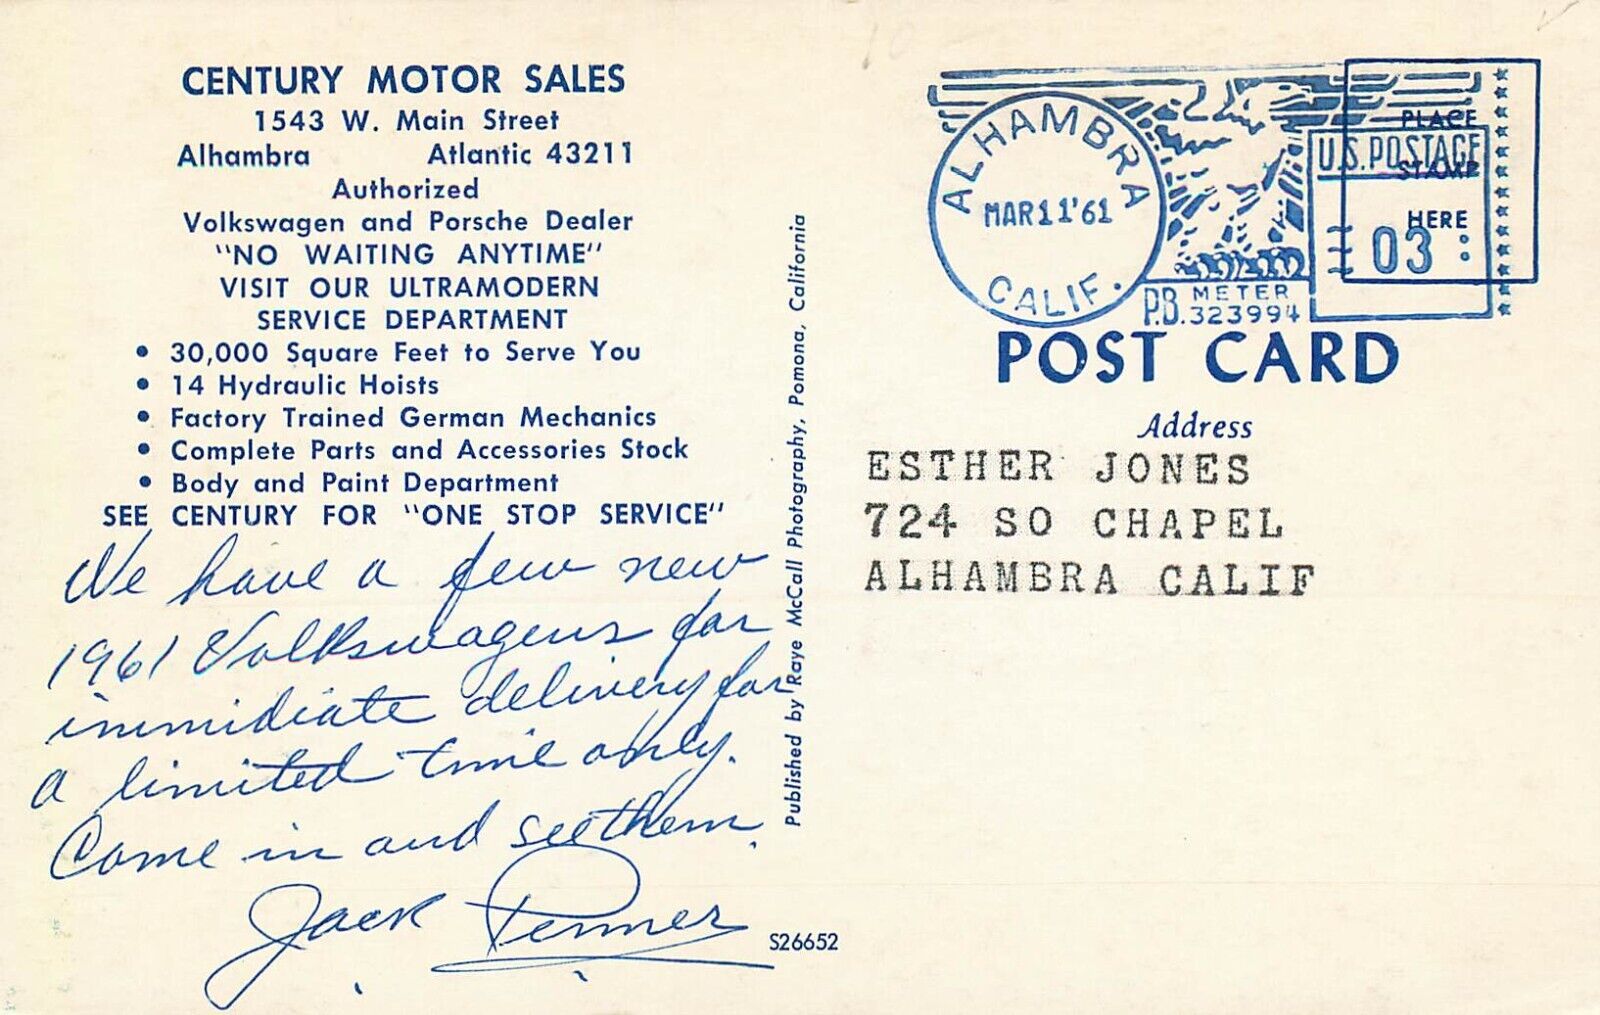 CENTURY MOTOR SALES
1543 W. Main Street
Alhambra Atlantic 43211
Authorized
Volkswagen and Porsche Dealer
"NO WAITING ANYTIME"
VISIT OUR ULTRAMODERN
SERVICE DEPARTMENT
• 30,000 Square Feet to Serve You
• 14 Hydraulic Hoists
• Factory Trained German Mechanics
• Complete Parts and Accessories Stock
• Body and Paint Department
SEE CENTURY FOR "ONE STOP SERVICE"
We have a few new
1961 Volkswagens for
immidiate delivery for
a limited time only.
Come in and see them.
Jack Penner
S26652
Published by Raye McCall Photography, Pomona, California
ALHAMBRA
MAR 11 '61
CALIF.
P.B. METER
323994
U.S. POSTAGE
03
PLACE
STAMP
HERE
POST CARD
Address
ESTHER JONES
724 SO CHAPEL
ALHAMBRA CALIF